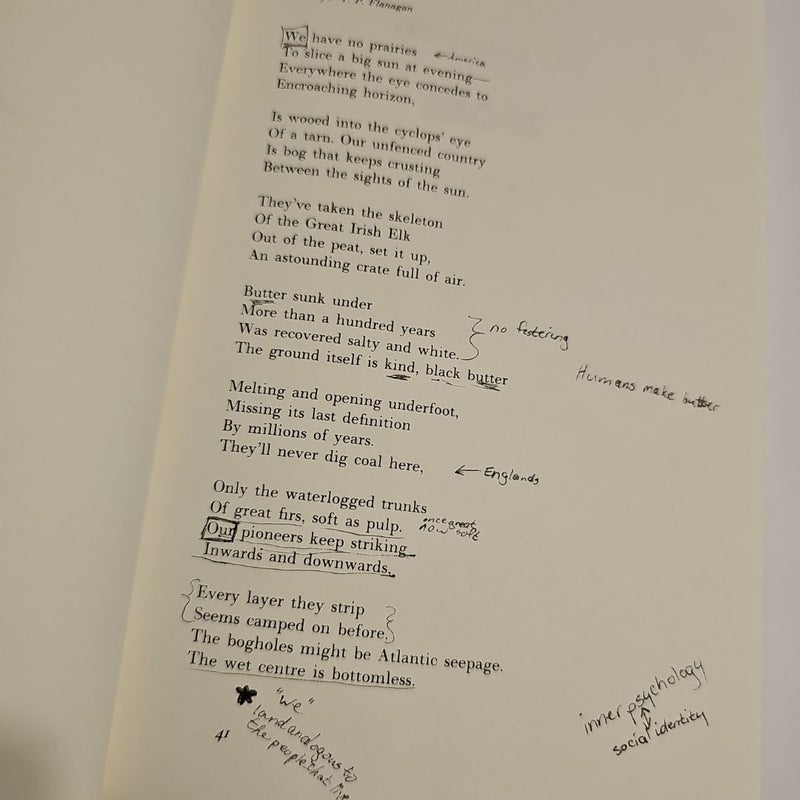 P. Flanagan
We have no prairies
← America
To slice a big sun at evening—
Everywhere the eye concedes to
Encroaching horizon,
Is wooed into the cyclops' eye
Of a tarn. Our unfenced country
Is bog that keeps crusting
Between the sights of the sun.
They've taken the skeleton
Of the Great Irish Elk
Out of the peat, set it up,
An astounding crate full of air.
Butter sunk under
More than a hundred years
no festering
Was recovered salty and white.
The ground itself is kind, black butter
Humans make butter
Melting and opening underfoot,
Missing its last definition
By millions of years.
They'll never dig coal here,
← Englands
Only the waterlogged trunks
Of great firs, soft as pulp.
once great
now soft
Our pioneers keep striking
Inwards and downwards,
Every layer they strip
Seems camped on before.
The bogholes might be Atlantic seepage.
The wet centre is bottomless.
★ "We"
land analogous to
the people that live
inner psychology
↕
social identity
41